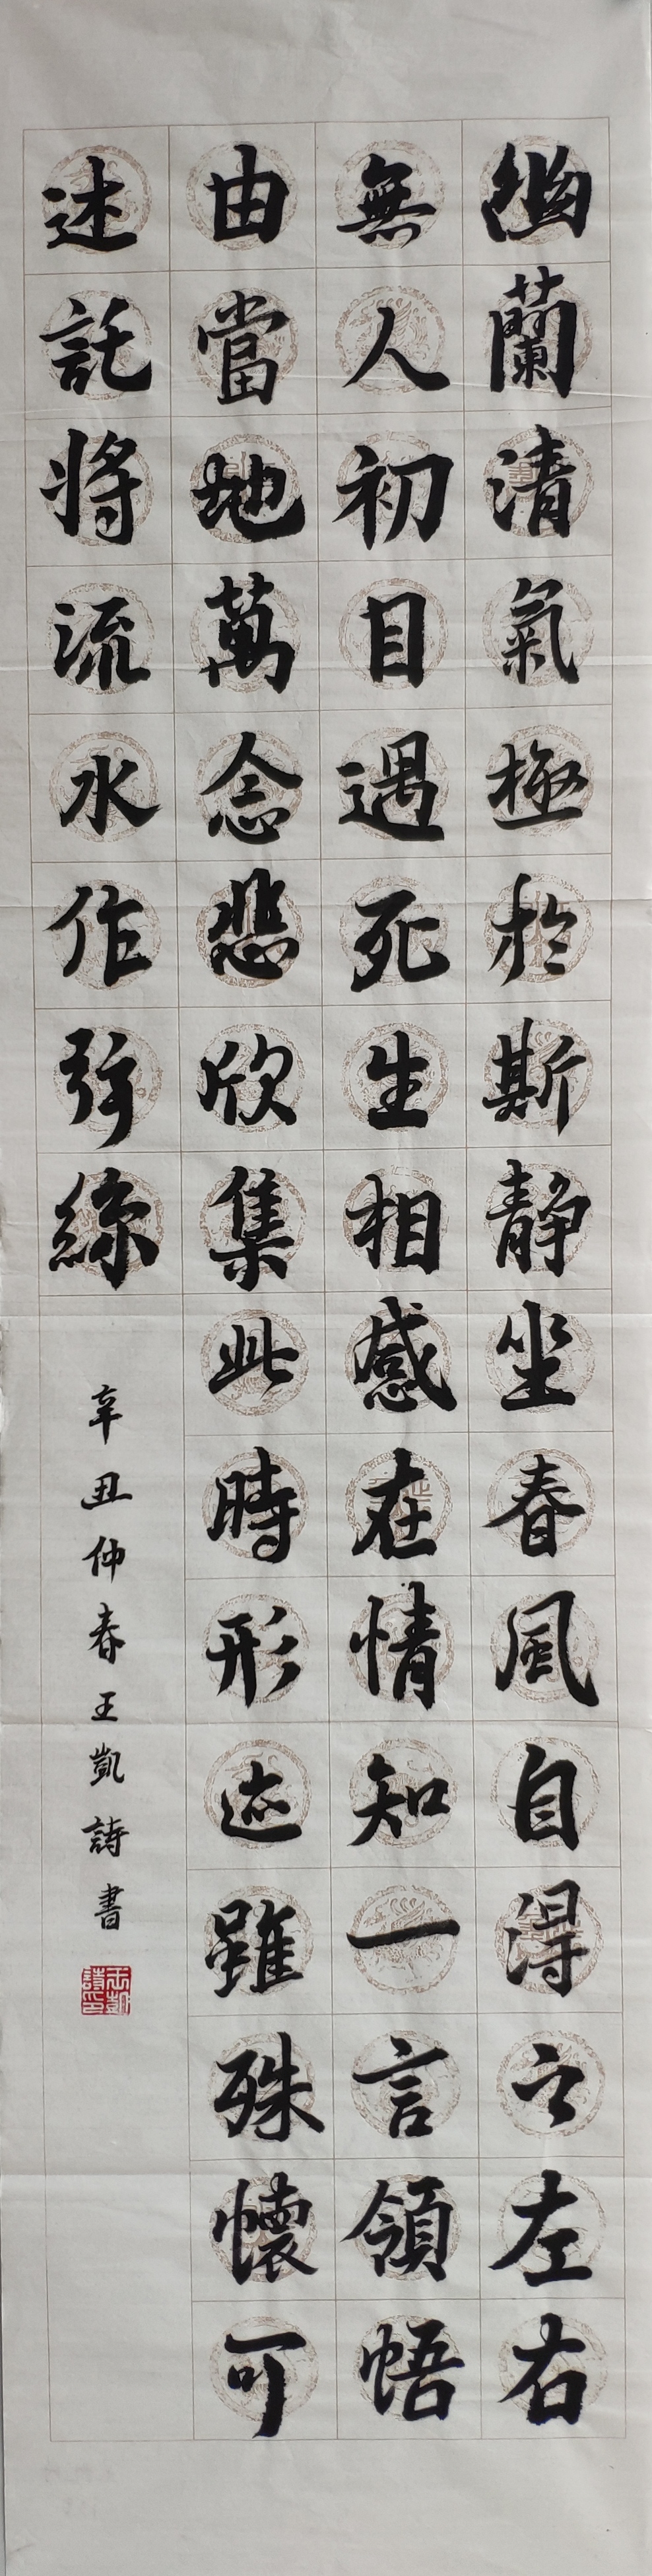 幽蘭清氣極於斯靜坐春風自得之左右
無人初目遇死生相感在情知一言領悟
由當地萬念悲欣集此時形迹雖殊懷可
述託將流水作弦絲
辛丑仲春王凱詩書